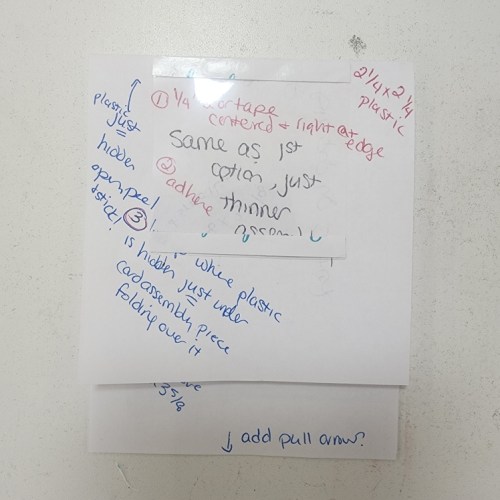 2 1/4 x 2 1/4
plastic
① 1/4" tape
centered + right at
edge
Same as 1st
option, just
thinner
② adhere
plastic
just
hidden
open, peel
+ stick!
③
where plastic
is hidden just under
card assembly piece
folding over it
3 5/8
↓ add pull arrow?